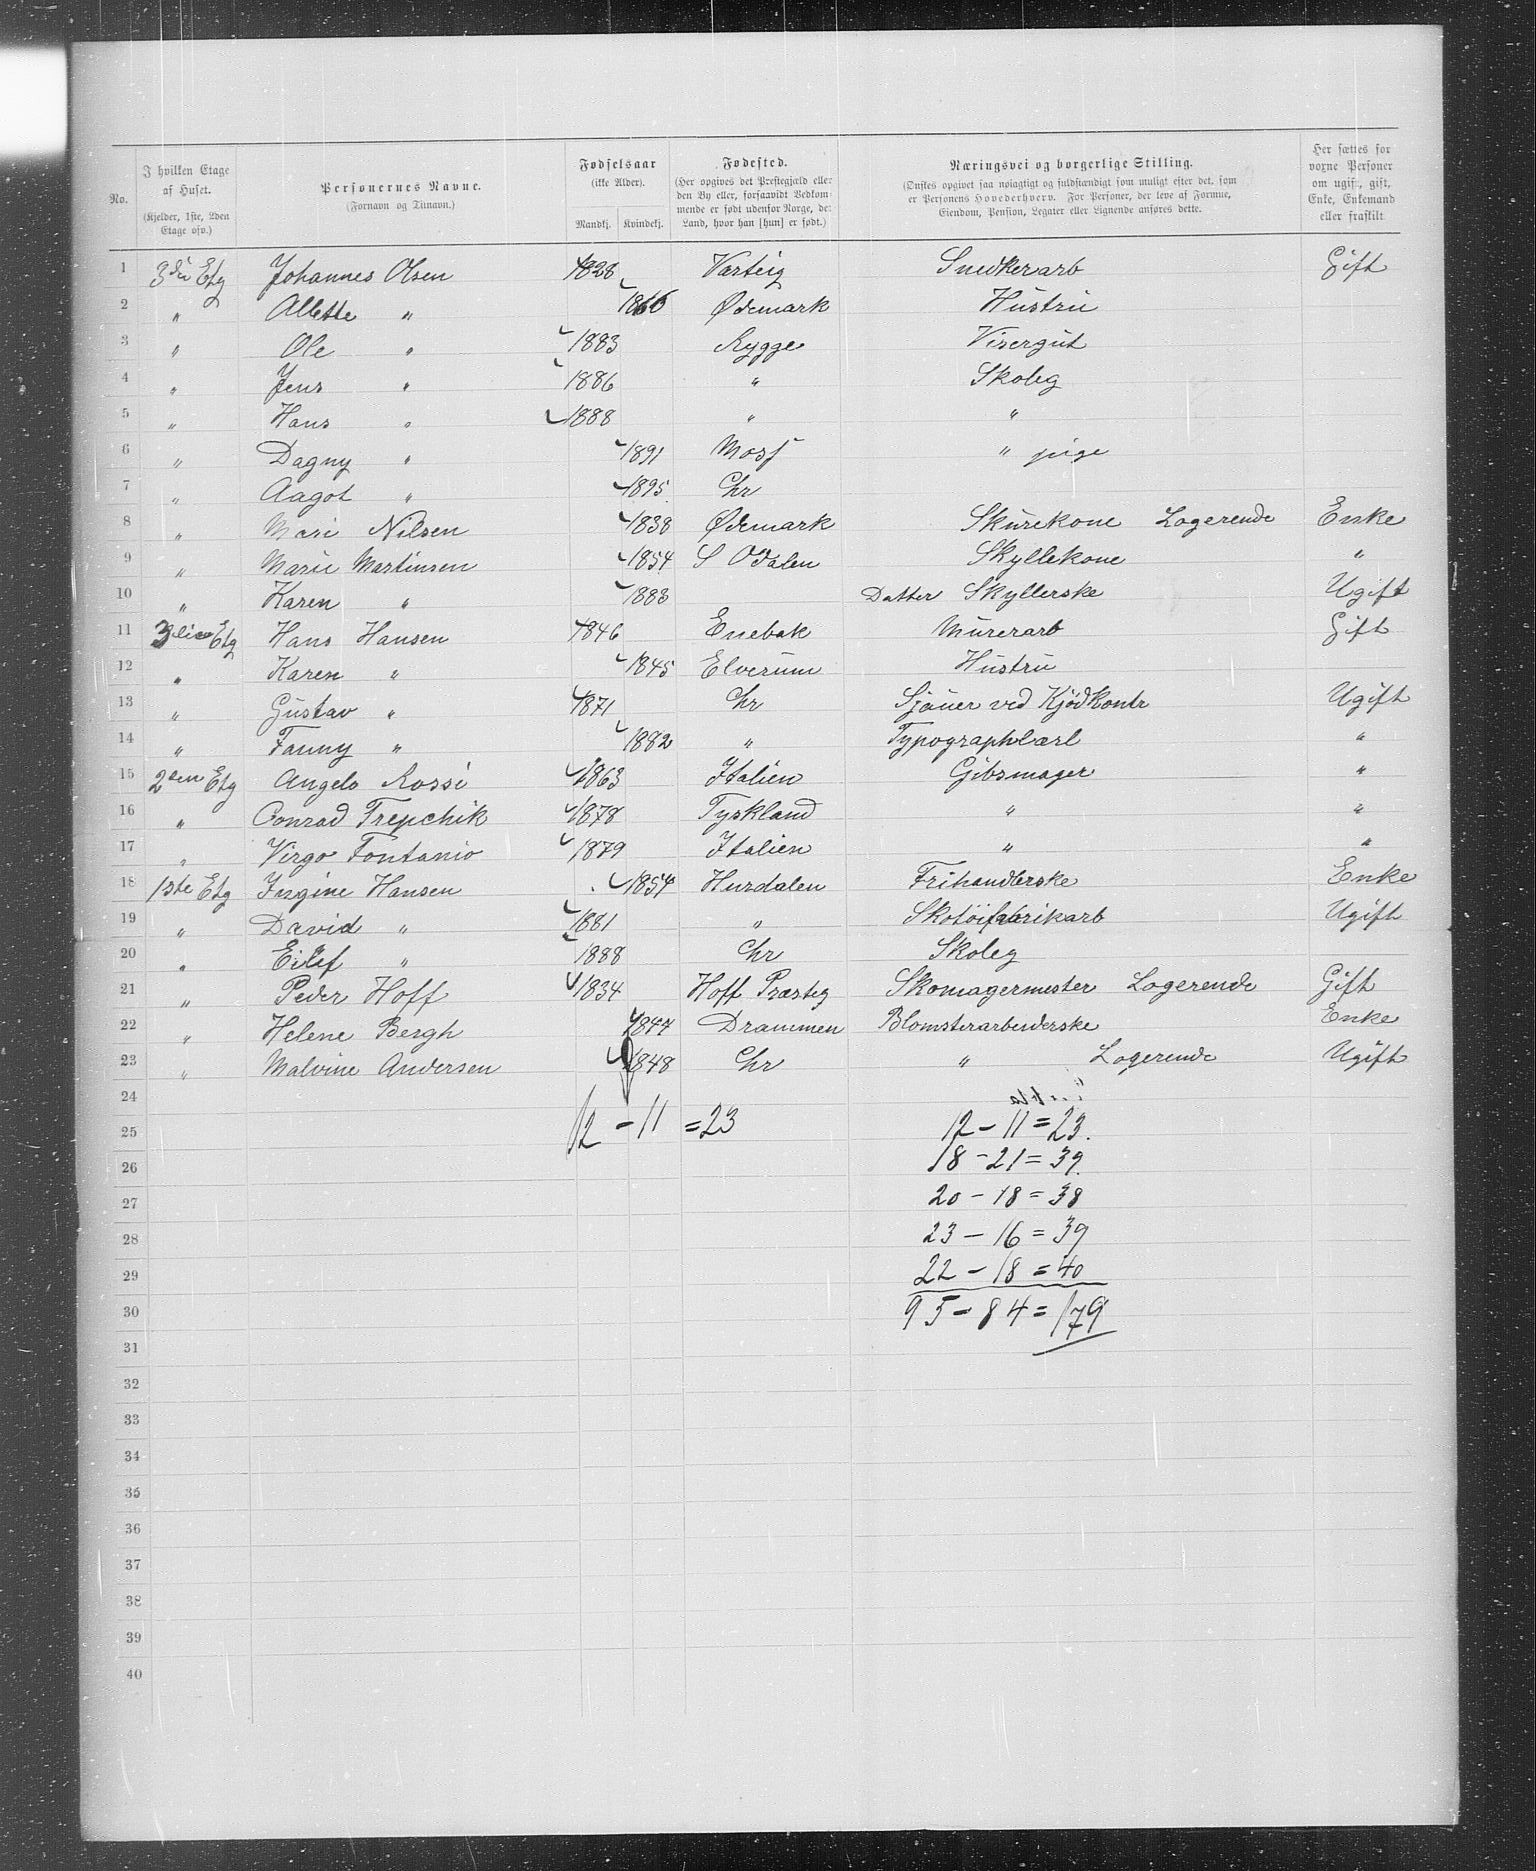 No.
I hvilken Etage af Huset. (Kjelder, 1ste, 2den Etage osv.)
Personernes Navne. (Fornavn og Tilnavn.)
Fødselsaar (ikke Alder). Mandkj. Kvindekj.
Fødested. (Her opgives det Prestegjæld eller den By eller, forsaavidt Vedkommende er født udenfor Norge, det Land, hvor han [hun] er født.)
Næringsvei og borgerlige Stilling. (Ønskes opgivet saa nøiagtigt og fuldstændigt som muligt efter det, som er Personens Hovederhverv. For Personer, der leve af Formue, Eiendom, Pension, Legater eller Lignende anføres dette.
Her sættes for voxne Personer om ugift, gift, Enke, Enkemand eller fraskilt
1 3die Etg Johannes Olsen 1828 Varteig Snedkerarb Gift
2 " Allette " 1866 Ødemark Hustru
3 " Ole " 1883 Rygge Visergut
4 " Jens " 1886 " Skoleg
5 " Hans " 1888 " "
6 " Dagny " 1891 Moss " pige
7 " Aagot " 1895 Chr
8 " Mari Nilsen 1838 Ødemark Skurekone Logerende Enke
9 " Marie Martinsen 1854 S Odalen Skyllekone "
10 " Karen " 1883 Datter Skyllerske Ugift
11 3die Etg Hans Hansen 1846 Enebak Murerarb Gift
12 " Karen " 1845 Elverum Hustru
13 " Gustav " 1871 Chr Sjauer ved Kjødkontr Ugift
14 " Fanny " 1882 " Typographlærl "
15 2den Etg Angelo Rossi 1863 Italien Gibsmager "
16 " Conrad Trepchik 1878 Tyskland " "
17 " Virgo Fontanio 1879 Italien " "
18 1ste Etg Ingine Hansen 1854 Hurdalen Frihandlerske Enke
19 " David " 1881 " Skotøifabrikarb Ugift
20 " Eilef " 1888 Chr Skoleg
21 " Peder Hoff 1834 Hoff Præsteg Skomagermester Logerende Gift
22 " Helene Bergh 1844 Drammen Blomsterarbeiderske Enke
23 " Malvine Andersen 1848 Chr " Logerende Ugift
24
25 12 - 11 = 23 12 - 11 = 23.
26 18 - 21 = 39.
27 20 - 18 = 38
28 23 - 16 = 39
29 22 - 18 = 40
30 95 - 84 = 179
31
32
33
34
35
36
37
38
39
40